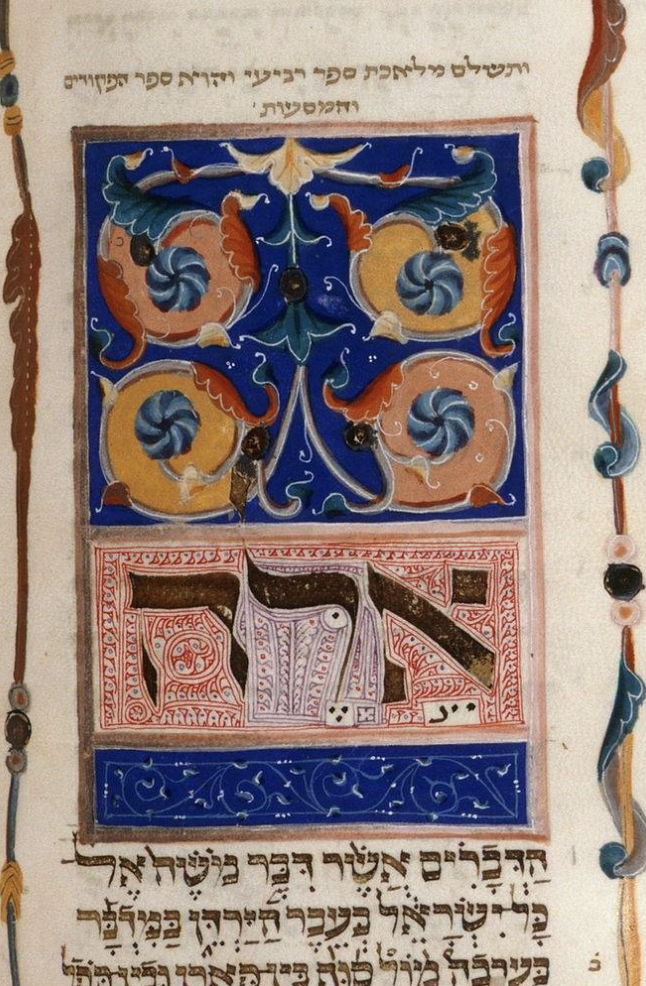 ותשלם מלאכת ספר רביעי והוא ספר הפיקודים
והמסעות
אֵ֣לֶּה
הַדְּבָרִים אֲשֶׁר דִּבֶּר מֹשֶׁה אֶל
כָּל יִשְׂרָאֵל בְּעֵבֶר הַיַּרְדֵּן בַּמִּדְבָּר
בָּעֲרָבָה מוֹל סוּף בֵּין פָּארָן וּבֵין תֹּפֶל